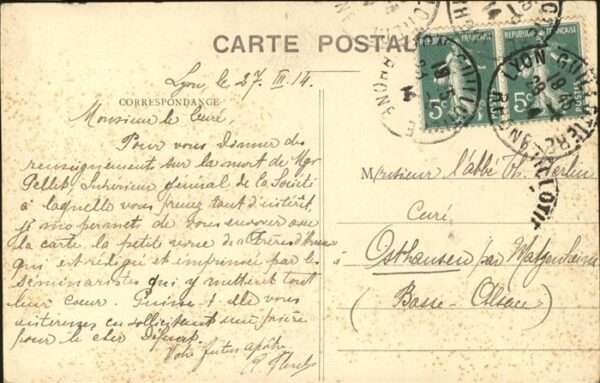 CARTE POSTALE
Lyon, le 27. III. 14.
CORRESPONDANCE
Monsieur le Curé,
Pour vous donner des
renseignements sur la mort de Mgr
Pellet, Supérieur général de la Société
à laquelle vous prenez tant d'intérêt
je me permets de vous envoyer avec
la carte la petite revue
qui est rédigée et imprimée par les
séminaristes qui y mettent tout
leur coeur. Puisse-t-elle vous
intéresser en sollicitant une prière
pour le cher Défunt.
Votre
REPUBLIQUE FRANÇAISE
5c
POSTES
REPUBLIQUE FRANÇAISE
5c
POSTES
LYON
RHONE
Monsieur l'abbé Th.
Curé
à Osthausen par Matzenheim
(Basse-Alsace)